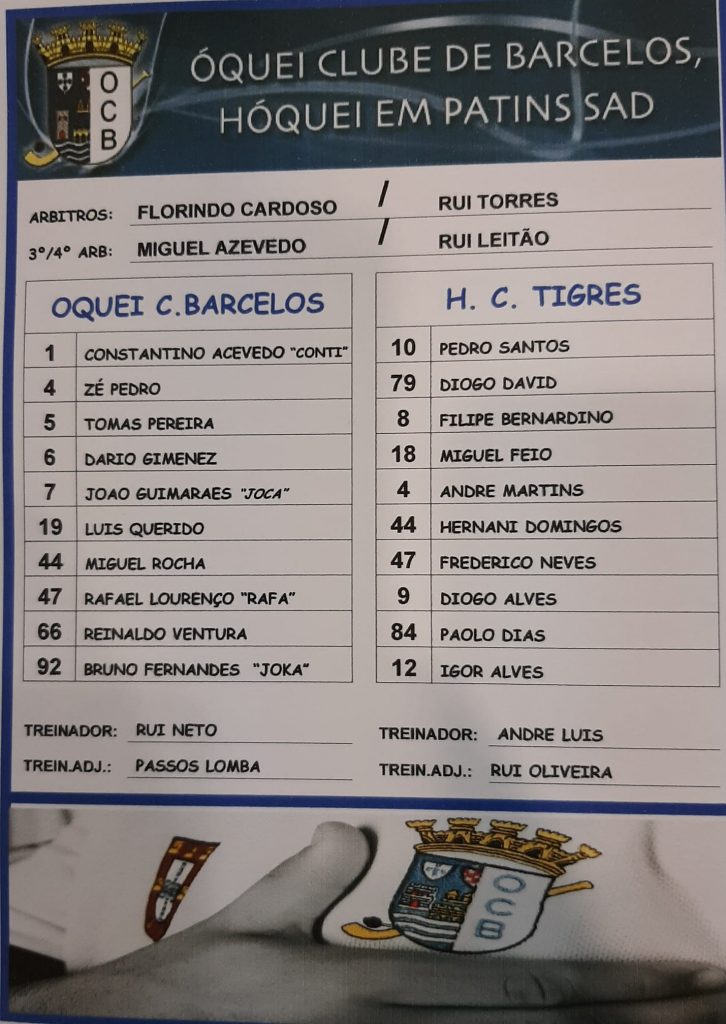 OCB
ÓQUEI CLUBE DE BARCELOS,
HÓQUEI EM PATINS SAD
ARBITROS: FLORINDO CARDOSO / RUI TORRES
3º/4º ARB: MIGUEL AZEVEDO / RUI LEITÃO
OQUEI C.BARCELOS
1 CONSTANTINO ACEVEDO "CONTI"
4 ZÉ PEDRO
5 TOMAS PEREIRA
6 DARIO GIMENEZ
7 JOAO GUIMARAES "JOCA"
19 LUIS QUERIDO
44 MIGUEL ROCHA
47 RAFAEL LOURENÇO "RAFA"
66 REINALDO VENTURA
92 BRUNO FERNANDES "JOKA"
TREINADOR: RUI NETO
TREIN.ADJ.: PASSOS LOMBA
H. C. TIGRES
10 PEDRO SANTOS
79 DIOGO DAVID
8 FILIPE BERNARDINO
18 MIGUEL FEIO
4 ANDRE MARTINS
44 HERNANI DOMINGOS
47 FREDERICO NEVES
9 DIOGO ALVES
84 PAOLO DIAS
12 IGOR ALVES
TREINADOR: ANDRE LUIS
TREIN.ADJ.: RUI OLIVEIRA
OCB